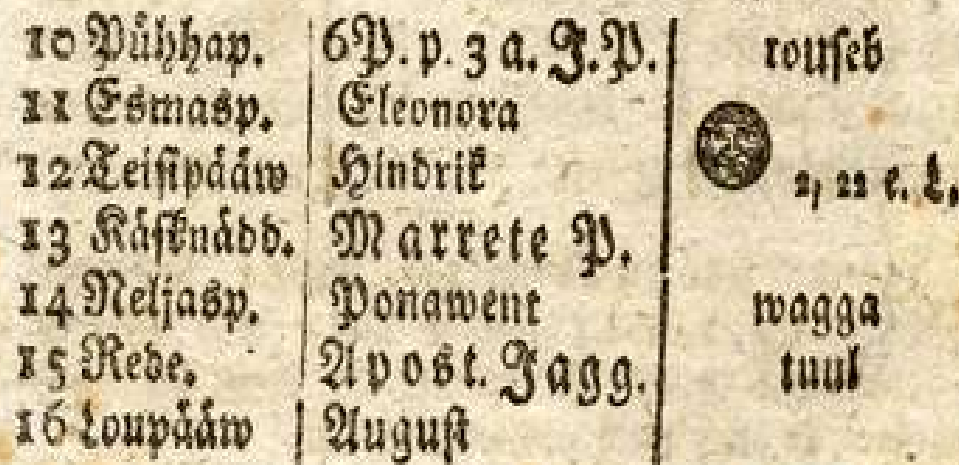 10 Pühhap. 6P. p. 3 a. J.P. rouseb
11 Esmasp. Eleonora
12 Teisipääw Hindrik 2, 22 e. L.
13 Käsknädd. Marrete P.
14 Neljasp. Ponawent wagga
15 Rede. Apost. Jagg. tuul
16 Loupääw August